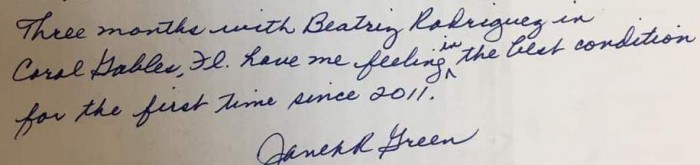 Three months with Beatriz Rodriguez in
Coral Gables, Fl. have me feeling in the best condition
for the first time since 2011.
Green